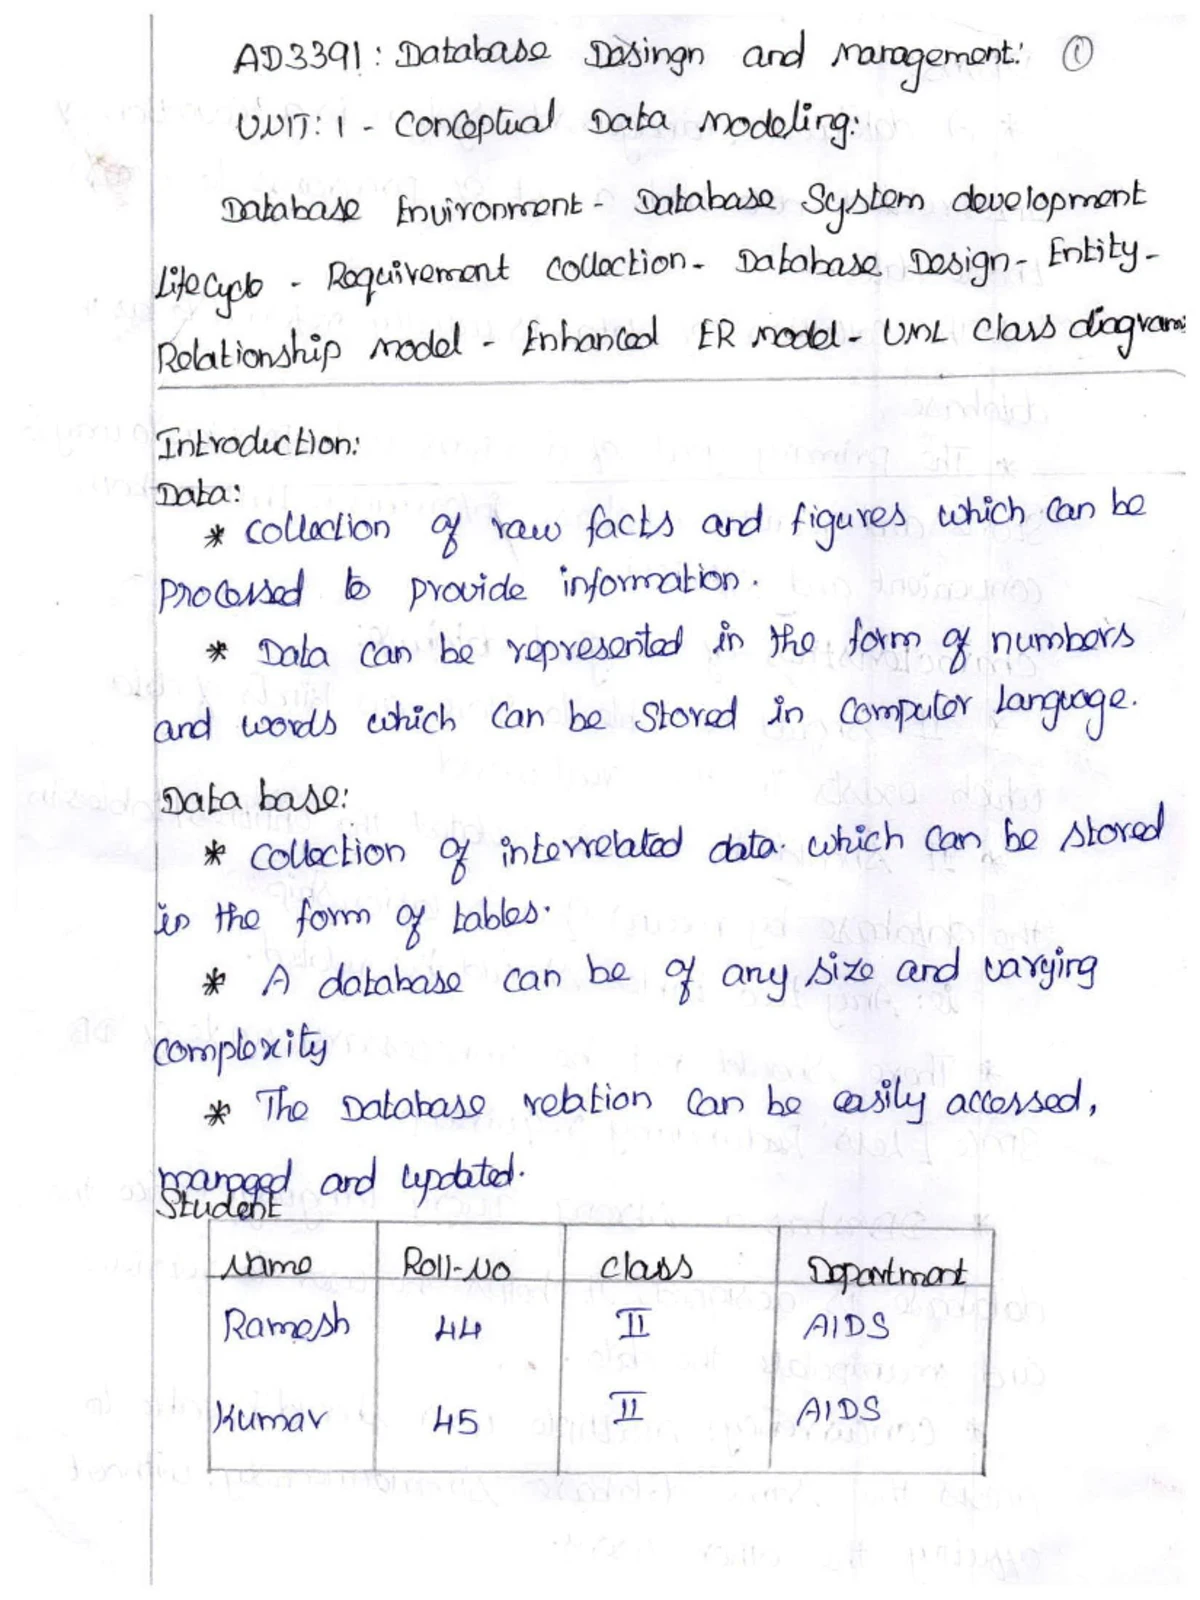 AD3391 : Database Dasingn and management: ①
UNIT: 1 - Conceptual Data modeling:
Database Environment - Database System development
Lifecycle - Requirement collection - Database Design - Entity -
Relationship model - Enhanced ER model - UML Class diagrams
Introduction:
Data:
* collection of raw facts and figures which can be
processed to provide information.
* Data can be represented in the form of numbers
and words which can be stored in computer language.
Data base:
* collection of interrelated data. which can be stored
in the form of tables.
* A database can be of any size and varying
complexity
* The Database relation can be easily accessed,
managed and updated.
Student
Name Roll-No class Department
Ramesh 44 II AIDS
Kumar 45 II AIDS